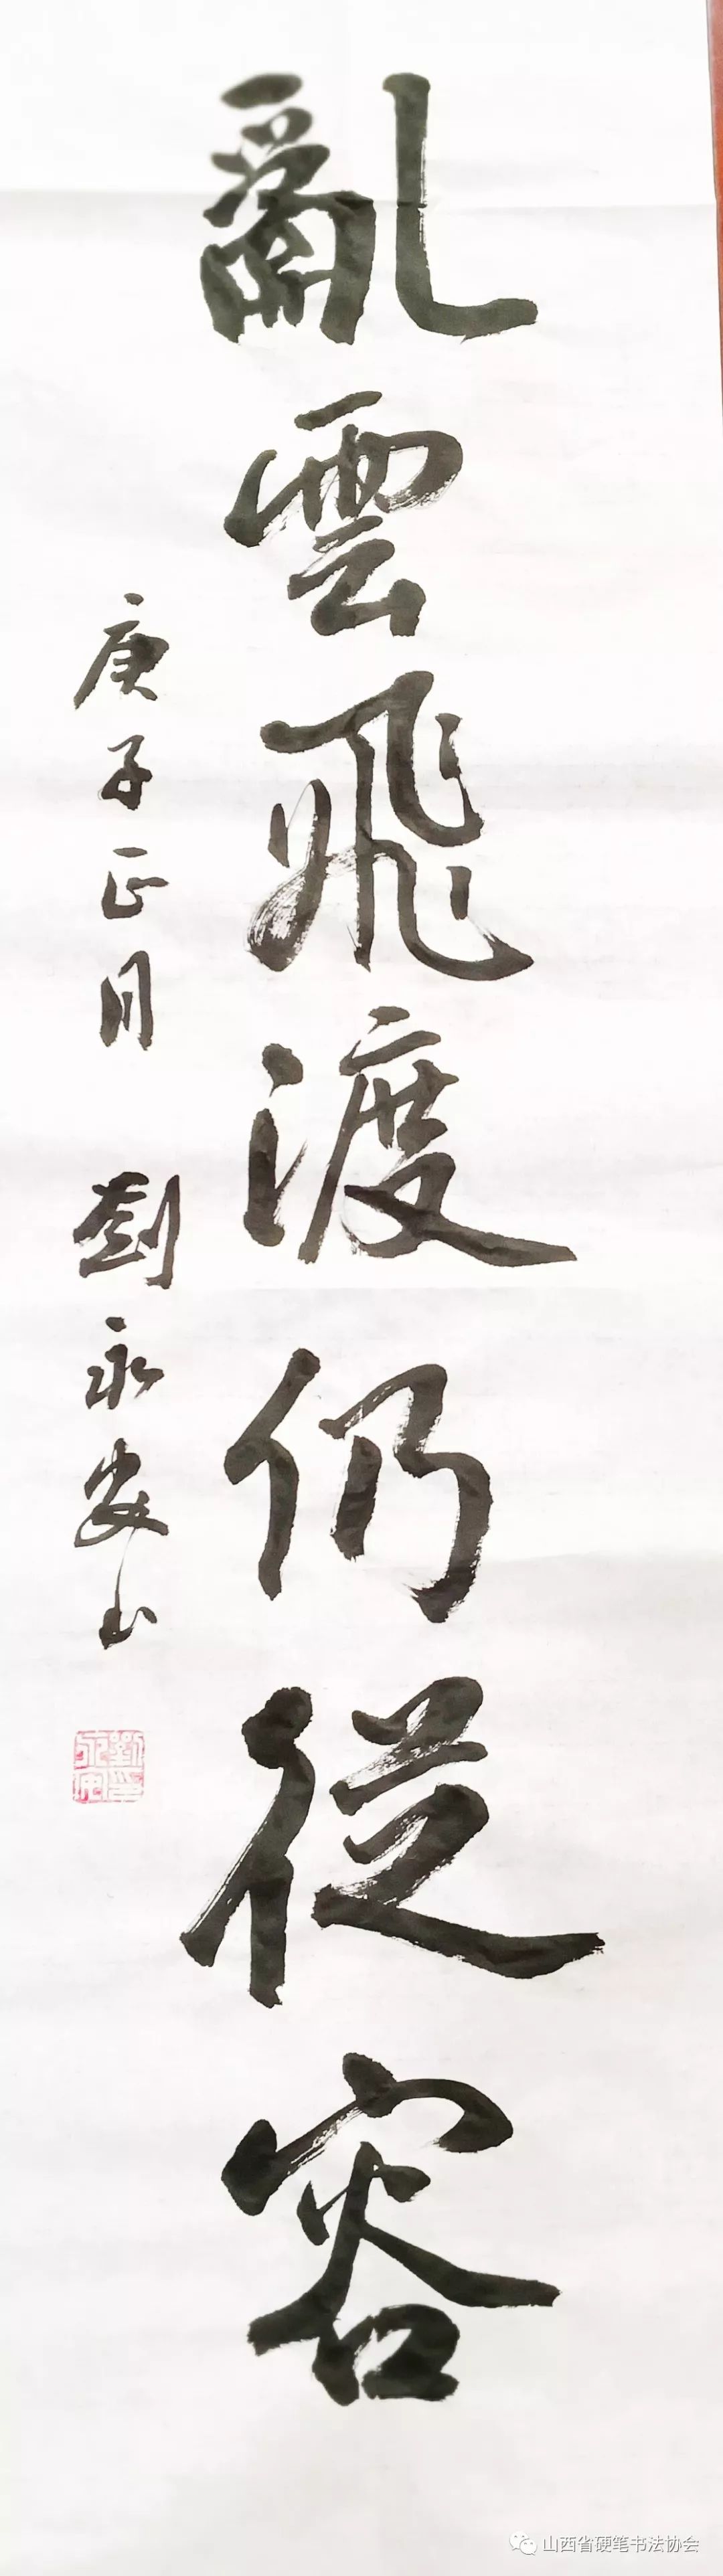 亂雲飛渡仍從容
庚子正月 劉永安書
山西省硬笔书法协会